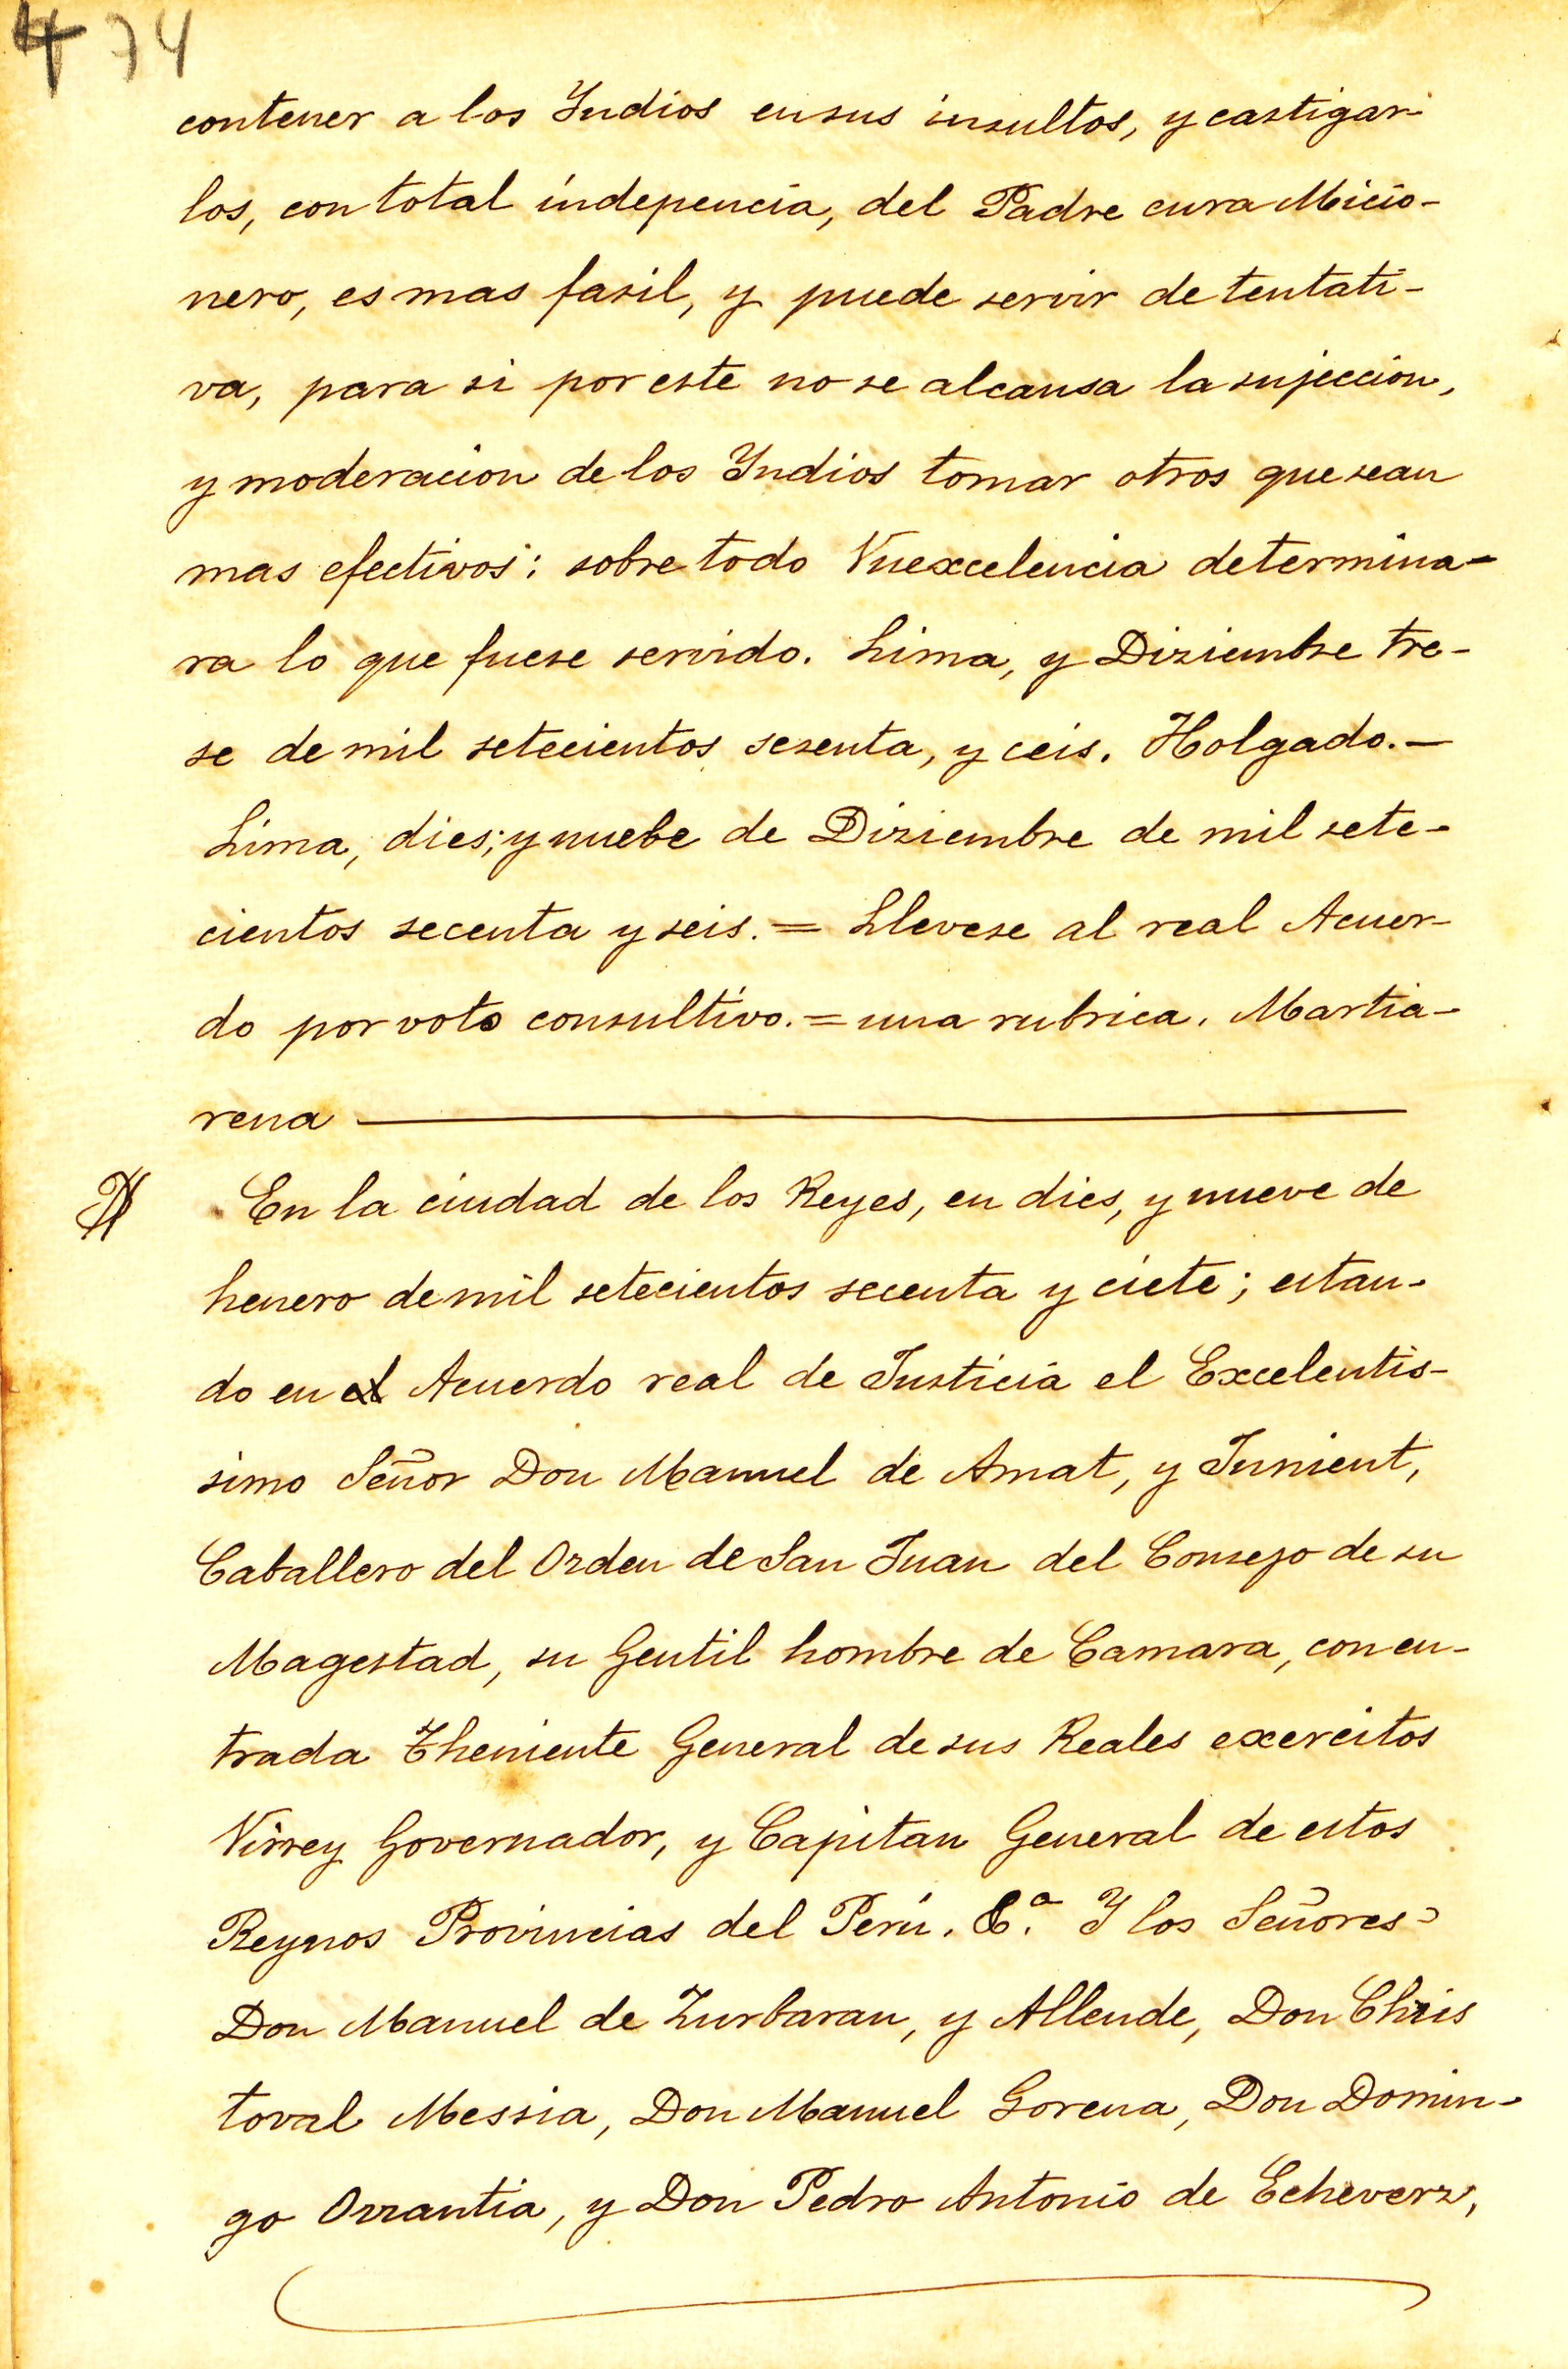 474
contener a los Yndios en sus insultos, y castigar-
los, con total indepencia, del Padre cura Micio-
nero, es mas fasil, y puede servir de tentati-
va, para si por este no se alcansa la sujeccion,
y moderacion de los Yndios tomar otros que sean
mas efectivos: sobre todo Vuexcelencia determina-
ra lo que fuese servido. Lima, y Diziembre tre-
se de mil setecientos sesenta, y ceis. Holgado.—
Lima, dies; y nuebe de Diziembre de mil sete-
cientos secenta y seis. = Llevese al real Acuer-
do por voto consultivo. = una rubrica. Martia-
rena
En la ciudad de los Reyes, en dies, y nueve de
henero de mil setecientos secenta y ciete; estan-
do en el Acuerdo real de Justicia el Excelentis-
simo Señor Don Manuel de Amat, y Junient,
Caballero del Orden de San Juan del Consejo de su
Magestad, su Gentil hombre de Camara, con en-
trada Theniente General de sus Reales exercitos
Virrey Governador, y Capitan General de estos
Reynos Provincias del Perú. &.ª Y los Señores=
Don Manuel de Zurbaran, y Allende, Don Chris
toval Messia, Don Manuel Gorena, Don Domin-
go Orrantia, y Don Pedro Antonio de Echeverz,